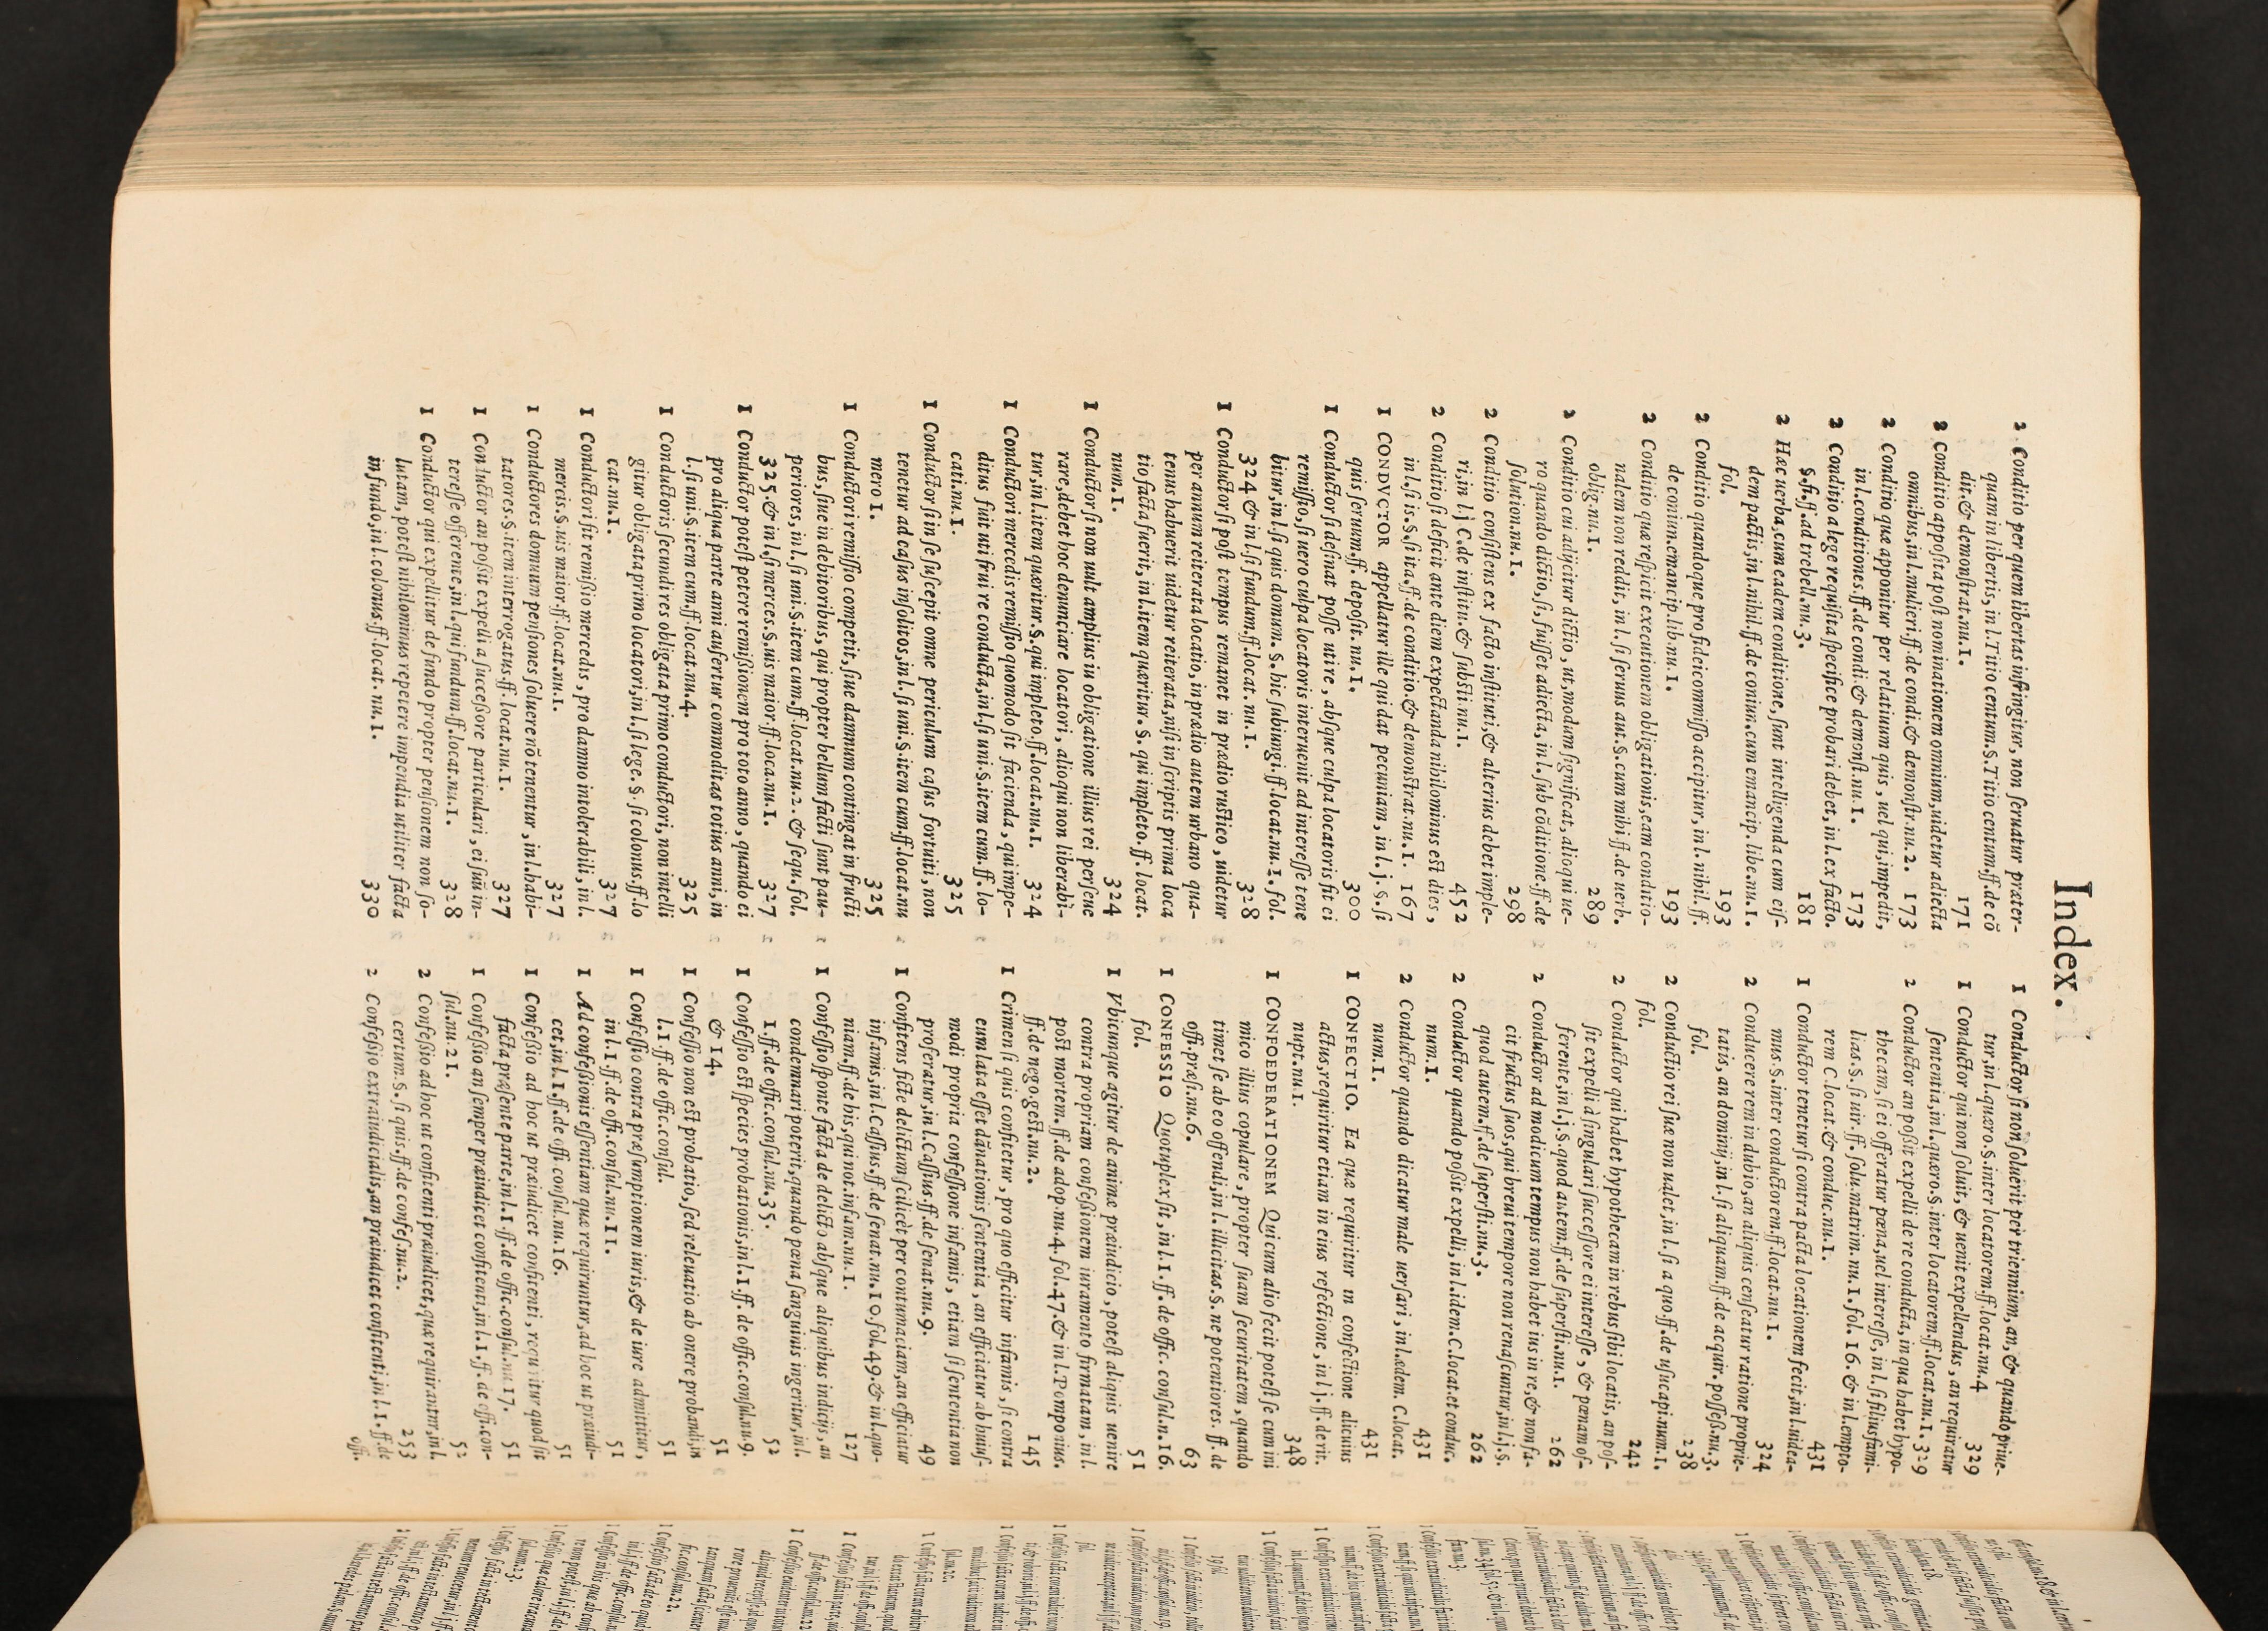 Index.
2 Conditio per quem libertas infringitur, non seruatur præter-
quam in libertis, in l. Titio centum.§.Titio centum.ff.de cō
dit.& demonstrat.nu.1. 171
2 Conditio apposita post nominationem omnium,uidetur adiecta
omnibus,in l.mulieri.ff.de condi.& demonstr.nu.2. 173
2 Conditio quæ apponitur per relatiuum quis , uel qui,impedit,
in l.conditiones.ff.de condi.& demonst.nu.1. 173
2 Conditio a lege requisita specifice probari debet, in l.ex facto.
§.fi.ff.ad trebell.nu.3. 181
2 Hæc uerba,cum eadem conditione,sunt intelligenda cum eis-
dem pactis,in l.nihil.ff.de coniun.cum emancip. libe.nu.1.
fol. 193
2 Conditio quandoque pro fideicommisso accipitur,in l.nihil.ff.
de coniun.emancip.lib.nu.1. 193
2 Conditio quæ respicit executionem obligationis,eam conditio-
nalem non reddit, in l.si seruus aut.§.cum mihi.ff.de uerb.
oblig.nu.1. 289
2 Conditio cui adijcitur dictio , ut,modum significat, alioqui ue-
ro quando dictio, si, fuisset adiecta, in l. sub cōditione.ff.de
solution.nu.1. 298
2 Conditio consistens ex facto instituti,& alterius debet imple-
ri,in l.j C.de institu.& substi.nu.1. 452
2 Conditio si deficit ante diem expectanda nihilominus est dies ,
in l.si is.§.si ita.ff.de conditio.& demonstrat.nu.1. 167
1 CONDVCTOR appellatur ille qui dat pecuniam, in l. j. §. si
quis seruum.ff. deposit. nu.1. 300
1 Conductor si desinat posse uti re , absque culpa locatoris fit ei
remissio, si uero culpa locatoris interuenit ad interesse tene
bitur,in l.si quis domum. §. hic subiungi.ff.locat.nu.1. fol.
324 & in l.si fundum.ff.locat. nu.1. 328
1 Conductor si post tempus remanet in prædio rustico , uidetur
per annum reiterata locatio, in prædio autem urbano qua-
tenus habuerit uidetur reiterata,nisi in scriptis prima loca
tio facta fuerit, in l.item quæritur. §. qui impleto.ff. locat.
num.1. 324
1 Conductor si non uult amplius in obligatione illius rei persene
rare,debet hoc denunciare locatori , alioqui non liberabi-
tur, in l.item quæritur.§.qui impleto.ff.locat.nu.1. 324
1 Conductori mercedis remissio quomodo sit facienda, qui impe-
ditus fuit uti frui re conducta,in l.si uni.§.item cum.ff. lo-
cati.nu.1. 325
1 Conductor si in se suscepit omne periculum casus fortuiti, non
tenetur ad casus insolitos,in l.si uni.§.item cum.ff.locat.nu
mero 1. 325
1 Conductori remissio competit, siue damnum contingat in fructi
bus, siue in debitoribus, qui propter bellum facti sunt pau-
periores, in l.si uni.§.item cum.ff.locat.nu.2.& sequ.fol.
325.& in l.si merces.§.uis maior.ff.loca.nu.1. 327
1 Conductor potest petere remissionem pro toto anno, quando ei
pro aliqua parte anni aufertur commoditas totius anni, in
l.si uni.§.item cum.ff.locat.nu.4. 325
1 Conductoris secundi res obligata primo conductori, non intelli
gitur obligata primo locatori,in l.si lege.§.si colonus.ff.lo
cat.nu.1. 327
1 Conductori fit remissio mercedis, pro damno intolerabili, in l.
mercis.§.uis maior.ff.locat.nu.1. 327
1 Conductores domuum pensiones soluere nō tenentur, in l.habi-
tatores.§.item interrogatus.ff.locat.nu.1. 327
1 Conductor an possit expelli a successore particulari , ei suū in-
teresse offerente,in l.qui fundum.ff.locat.nu.1. 328
1 Conductor qui expellitur de fundo propter pensionem non so-
lutam, potest nihilominus repetere impendia utiliter facta
in fundo,in l.colonus.ff.locat. nu.1. 330
1 Conductor si non soluerit per triennium, an, & quando priue-
tur,in l.quæro.§.inter locatorem.ff.locat.nu.4 329
1 Conductor qui non soluit, & uenit expellendus, an requiratur
sententia,in l.quæro.§.inter locatorem.ff.locat.nu.1. 329
2 Conductor an possit expelli de re conducta, in qua habet hypo-
thecam,si ei offeratur pœna,uel interesse, in l.si filiusfami-
lias.§.si uir.ff. solu.matrim. nu.1.fol. 16.& in l.empto-
rem C.locat.& conduc.nu.1. 431
1 Conductor tenetur si contra pacta locationem fecit,in l.uidea-
mus.§.inter conductorem.ff.locat.nu.1. 324
2 Conducere rem in dubio,an aliquis censeatur ratione proprie-
tatis, an dominij,in l.si aliquam.ff.de acquir. posses.nu.3.
fol. 238
2 Conductio rei suæ non ualet,in l.si a quo.ff.de usucapi.num.1.
fol. 242
2 Conductor qui habet hypothecam in rebus sibi locatis, an pos-
sit expelli à singulari successore ei interesse, & pœnam of-
ferente,in l.j.§.quod autem.ff.de supersti.nu.1. 262
2 Conductor ad modicum tempus non habet ius in re,& non fa-
cit fructus suos,qui breui tempore non renascuntur,in l.j.§.
quod autem.ff.de supersti.nu.3. 262
2 Conductor quando possit expelli, in l.idem.C.locat.et conduc.
num.1. 431
2 Conductor quando dicatur male uersari , in l.ædem. C.locat.
num.1. 431
1 CONFECTIO. Ea quæ requiritur in confectione alicuius
actus,requiritur etiam in eius refectione , in l j. ff. de rit.
nupt.nu.1. 348
1 CONFOEDERATIONEM Qui cum alio fecit potest se cum ini
mico illius copulare , propter suam securitatem , quando
timet se ab eo offendi,in l.illicitas.§.ne potentiores. ff. de
offi.presi.nu.6. 63
1 CONFESSIO Quotuplex sit , in l. 1.ff. de offic. consul.n.16.
fol. 51
1 Vbicunque agitur de animæ præiudicio , potest aliquis uenire
contra propriam confessionem iuramento firmatam , in l.
post mortem.ff.de adop.nu.4.fol.47.& in l.Pomponius.
ff.de nego.gest.nu.2. 145
1 Crimen si quis confitetur , pro quo efficitur infamis , si contra
eum lata esset dānationis sententia , an efficiatur ab huius-
modi propria confessione infamis , etiam si sententia non
proferatur,in l.Cassius.ff.de senat.nu.9. 49
1 Confitens ficte delictum scilicèt per contumaciam,an efficiatur
infamis,in l.Cassius.ff.de senat.nu.10.fol.49.& in l.quo-
niam.ff.de his,qui not.infam.nu.1. 127
1 Confessio sponte facta de delicto absque aliquibus indicijs , an
condemnari poterit,quando pœna sanguinis ingeritur,in l.
1.ff.de offic.consul.nu.35. 52
1 Confessio est species probationis,in l.1.ff. de offic.consul.nu.9.
& 14. 51
1 Confessio non est probatio,sed releuatio ab onere probandi,in
l.1.ff.de offic.consul. 51
1 Confessio contra præsumptionem iuris,& de iure admittitur,
in l.1.ff.de offi.consul.nu.11. 51
1 Ad confessionis essentiam quæ requiruntur,ad hoc ut præiudi-
cet,in l.1.ff.de offi.consul.nu.16. 51
1 Confessio ad hoc ut præiudicet confitenti, requiritur quod sit
facta præsente parte,in l.1.ff.de offic.consul.nu.17. 51
1 Confessio an semper præiudicet confitenti,in l.1.ff. de offi.con-
sul.nu.21. 52
2 Confessio ad hoc ut confitenti præiudicet,quæ requirantur,in l.
certum.§.si quis.ff.de confes.nu.2. 253
2 Confessio extraiudicialis,an præiudicet confitenti,in l.1.ff.de
offi.